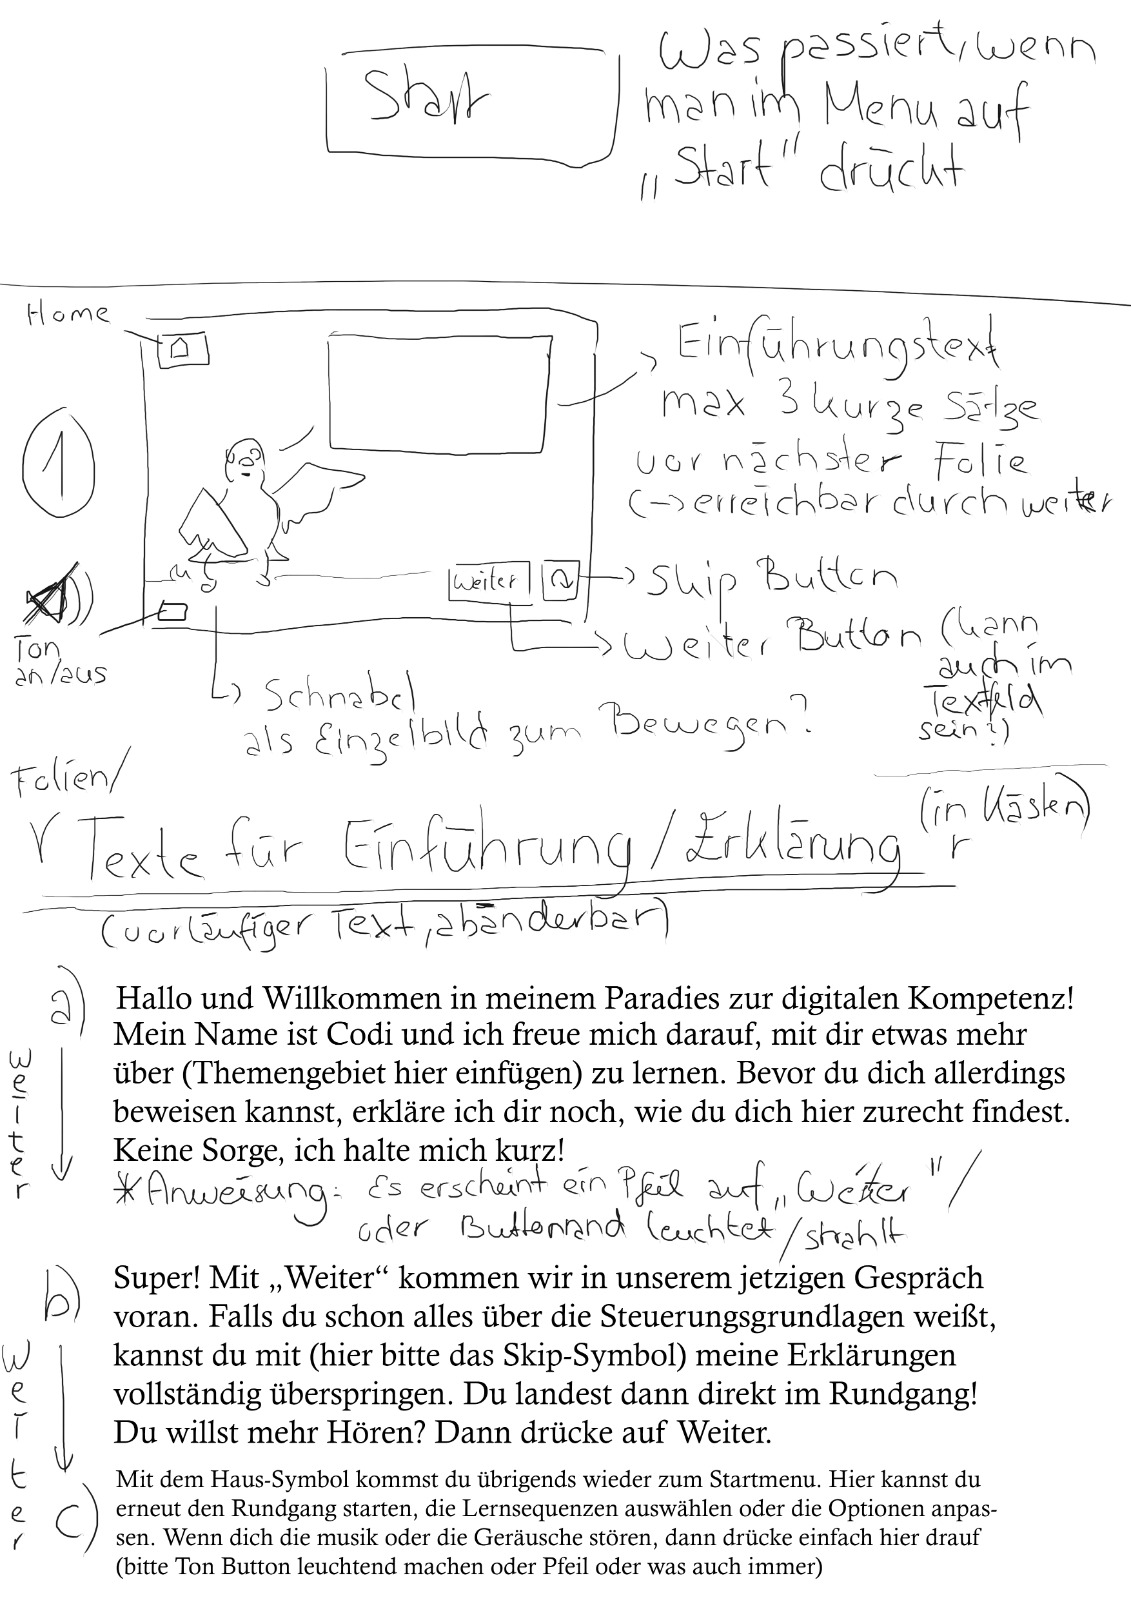 Start
Was passiert, wenn
man im Menu auf
„Start" drückt
Home
Einführungstext
max 3 kurze Sätze
vor nächster Folie
(→ erreichbar durch weiter
1
Weiter
Skip Button
Weiter Button (kann
auch im
Textfeld
sein?)
Ton
an/aus
Schnabel
als Einzelbild zum Bewegen?
Folien/
Texte für Einführung/Erklärung
(in Kästen)
r
(vorläufiger Text, abänderbar)
a)
Hallo und Willkommen in meinem Paradies zur digitalen Kompetenz!
Mein Name ist Codi und ich freue mich darauf, mit dir etwas mehr
über (Themengebiet hier einfügen) zu lernen. Bevor du dich allerdings
beweisen kannst, erkläre ich dir noch, wie du dich hier zurecht findest.
Keine Sorge, ich halte mich kurz!
weiter
*Anweisung: Es erscheint ein Pfeil auf „Weiter"/
oder Buttonrand leuchtet/strahlt
b)
Super! Mit „Weiter“ kommen wir in unserem jetzigen Gespräch
voran. Falls du schon alles über die Steuerungsgrundlagen weißt,
kannst du mit (hier bitte das Skip-Symbol) meine Erklärungen
vollständig überspringen. Du landest dann direkt im Rundgang!
Du willst mehr Hören? Dann drücke auf Weiter.
Weiter
c)
Mit dem Haus-Symbol kommst du übrigends wieder zum Startmenu. Hier kannst du
erneut den Rundgang starten, die Lernsequenzen auswählen oder die Optionen anpas-
sen. Wenn dich die musik oder die Geräusche stören, dann drücke einfach hier drauf
(bitte Ton Button leuchtend machen oder Pfeil oder was auch immer)